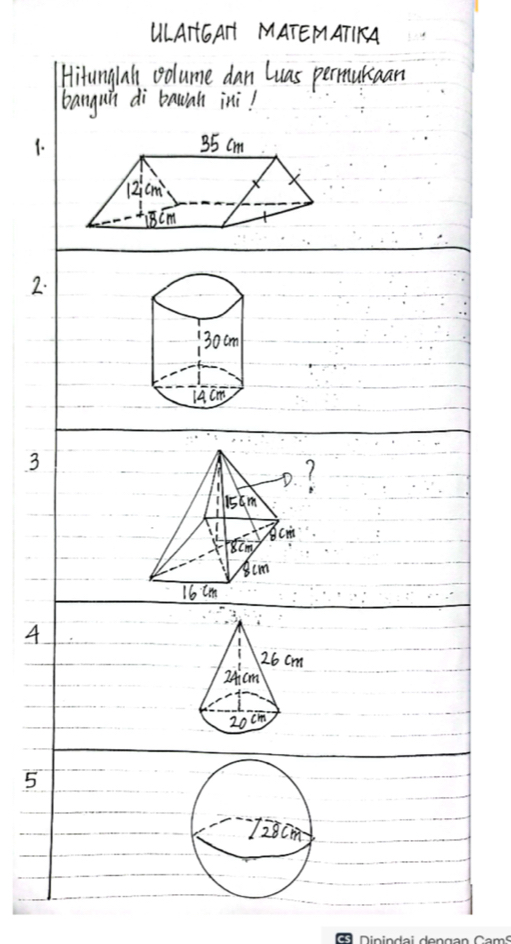 ULANGAN MATEMATIKA
Hitunglah volume dan Luas permukaan
bangun di bawah ini !
1.
35 cm
12 cm
18 cm
2.
30 cm
14 cm
3
?
15 cm
8 cm
8 cm
8 cm
16 cm
4
26 cm
24 cm
20 cm
5
28 cm
CS Dipindai dengan CamS